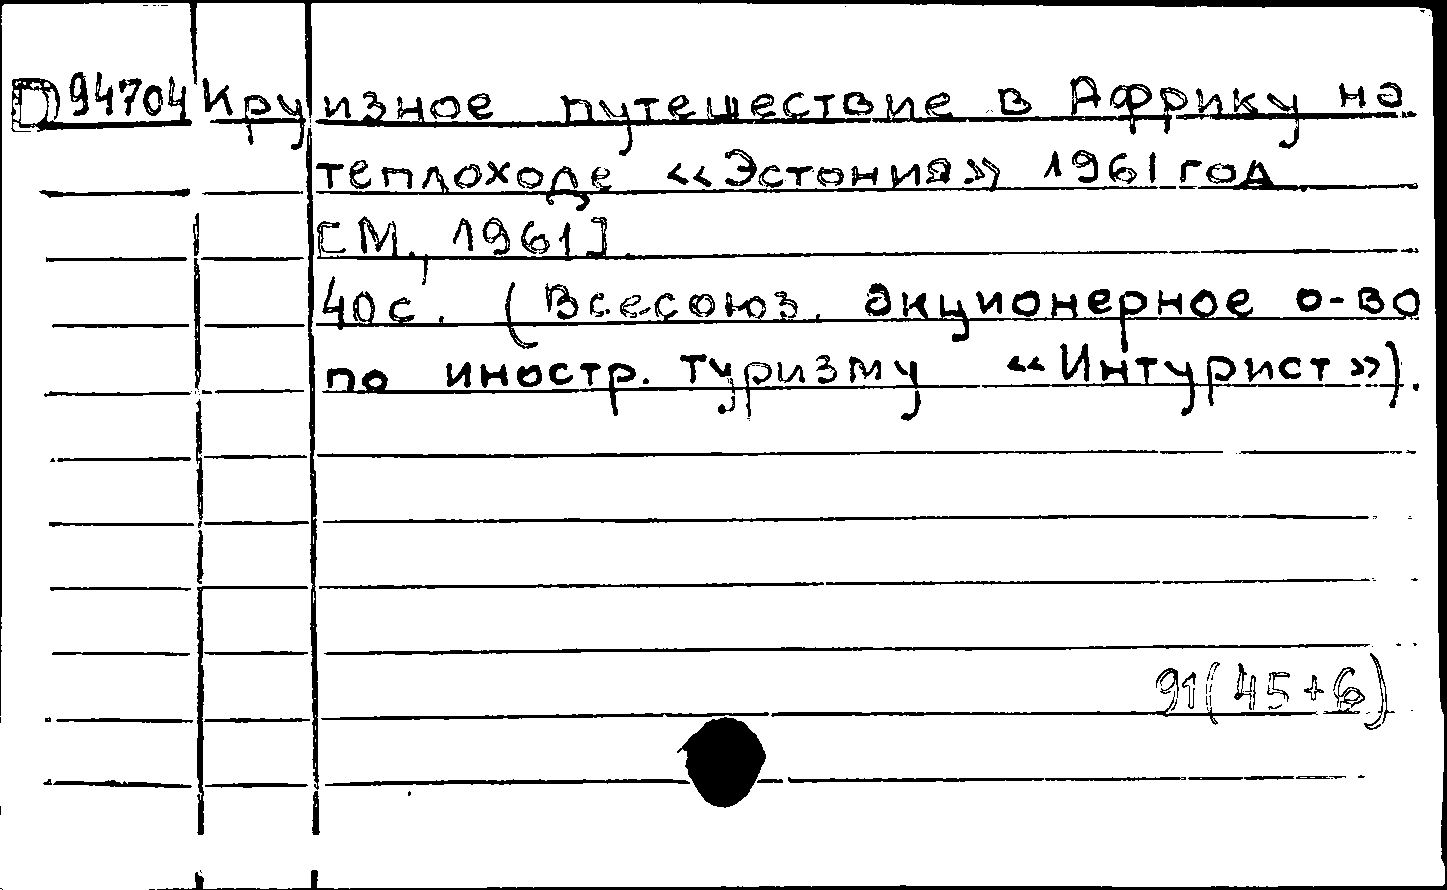 D 94704 Круизное путешествие в Африку на
теплоходе «Эстония» 1961 год
[М., 1961].
40 с. (Всесоюз. акционерное о-во
по иностр. туризму «Интурист»).
91(45+6)